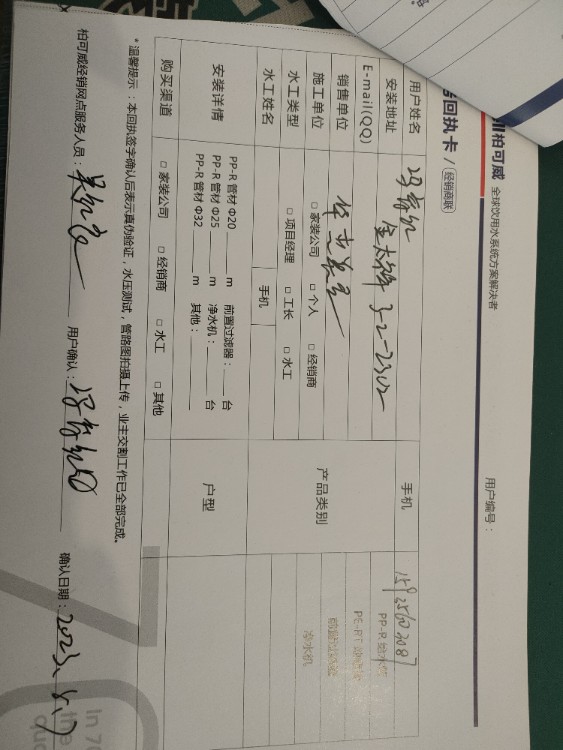 柏可威 全球饮用水系统方案解决者
用户编号：
回执卡 / 经销商联
用户姓名
手机
安装地址 3-2-2302
PP-R 给水管
E-mail(QQ)
PE-RT
销售单位
施工单位 □ 家装公司 □ 个人 □ 经销商
产品类别
净水机
水工类型 □ 项目经理 □ 工长 □ 水工
水工姓名 手机
安装详情
PP-R 管材 Φ20 ____ m 前置过滤器：____ 台
PP-R 管材 Φ25 ____ m 净水机：____ 台
PP-R 管材 Φ32 ____ m 其他：____
户型
购买渠道 □ 家装公司 □ 经销商 □ 水工 □ 其他
*温馨提示：本回执签字确认后表示真伪验证，水压测试，管路图拍摄上传，业主交割工作已全部完成。
柏可威经销网点服务人员： 用户确认： 确认日期：2023.5.7
In 70
the